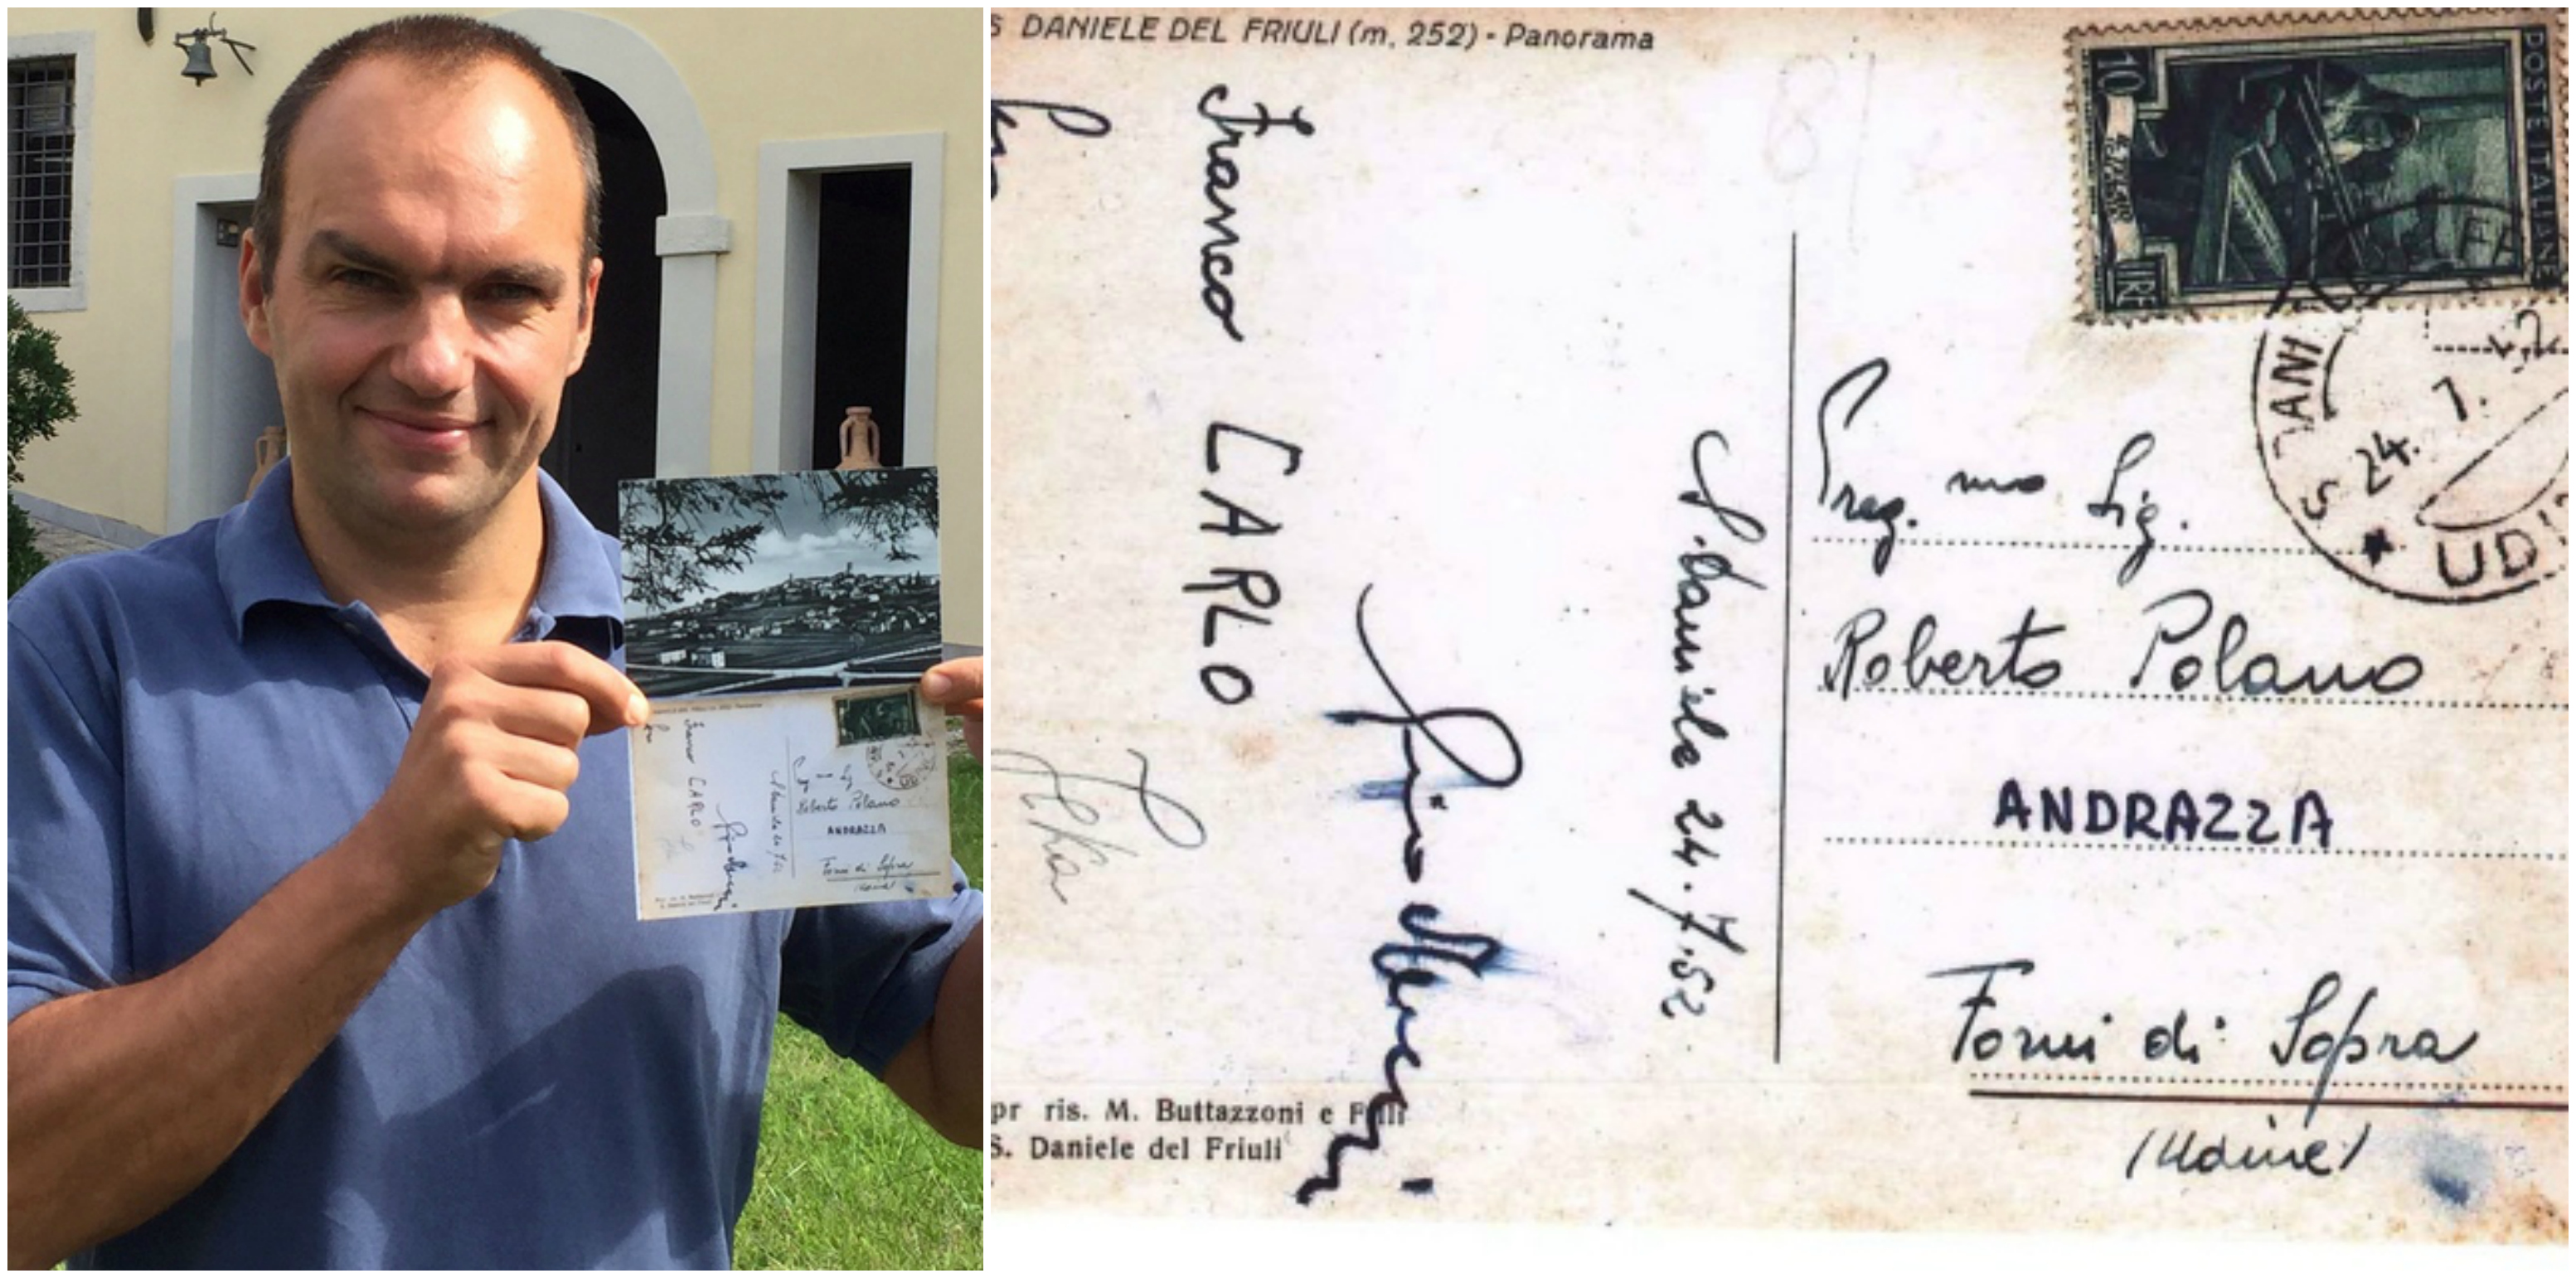 S DANIELE DEL FRIULI (m. 252) - Panorama
POSTE ITALIANE
10
LIRE
Franco
CARLO
S. Daniele 24.7.52
Egreg. mo Sig.
Roberto Polano
ANDRAZZA
Forni di Sopra
(Udine)
S ANI
24. 7.
UDI
pr ris. M. Buttazzoni e F.lli
S. Daniele del Friuli